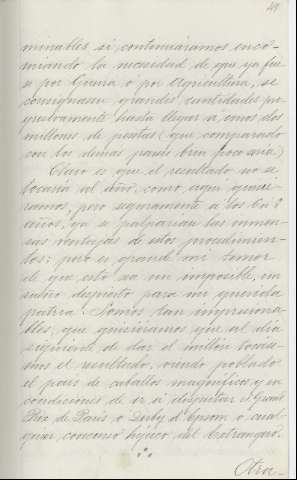 49
minables si continuáramos enco-
miando la necesidad de que ya fue
se por Guerra ó por Agricultura, se
consignaran grandes cantidades pro
gresivamente hasta llegar a unos dos
millones de pesetas (que comparado
con los demas paises bien poco seria)
Claro es que el resultado no se
tocaria al año, como aqui quere-
mos, pero seguramente a los 6 ú 8
años, ya se palparian las inmen-
sas ventajas de estos procedimien-
tos; pero es grande mi temor
de que esto sea un imposible, un
sueño despierto para mi querida
patria. Somos tan impresiona-
bles, que quisieramos que al dia
siguiente de dar el millón tocara-
mos el resultado, viendo poblado
el pais de caballos magnificos y en
condiciones de ir á disputar el Grand
Prix de Paris o Derby d'Epsom o cual-
quier concurso hipico del Extrangero.
Otra-